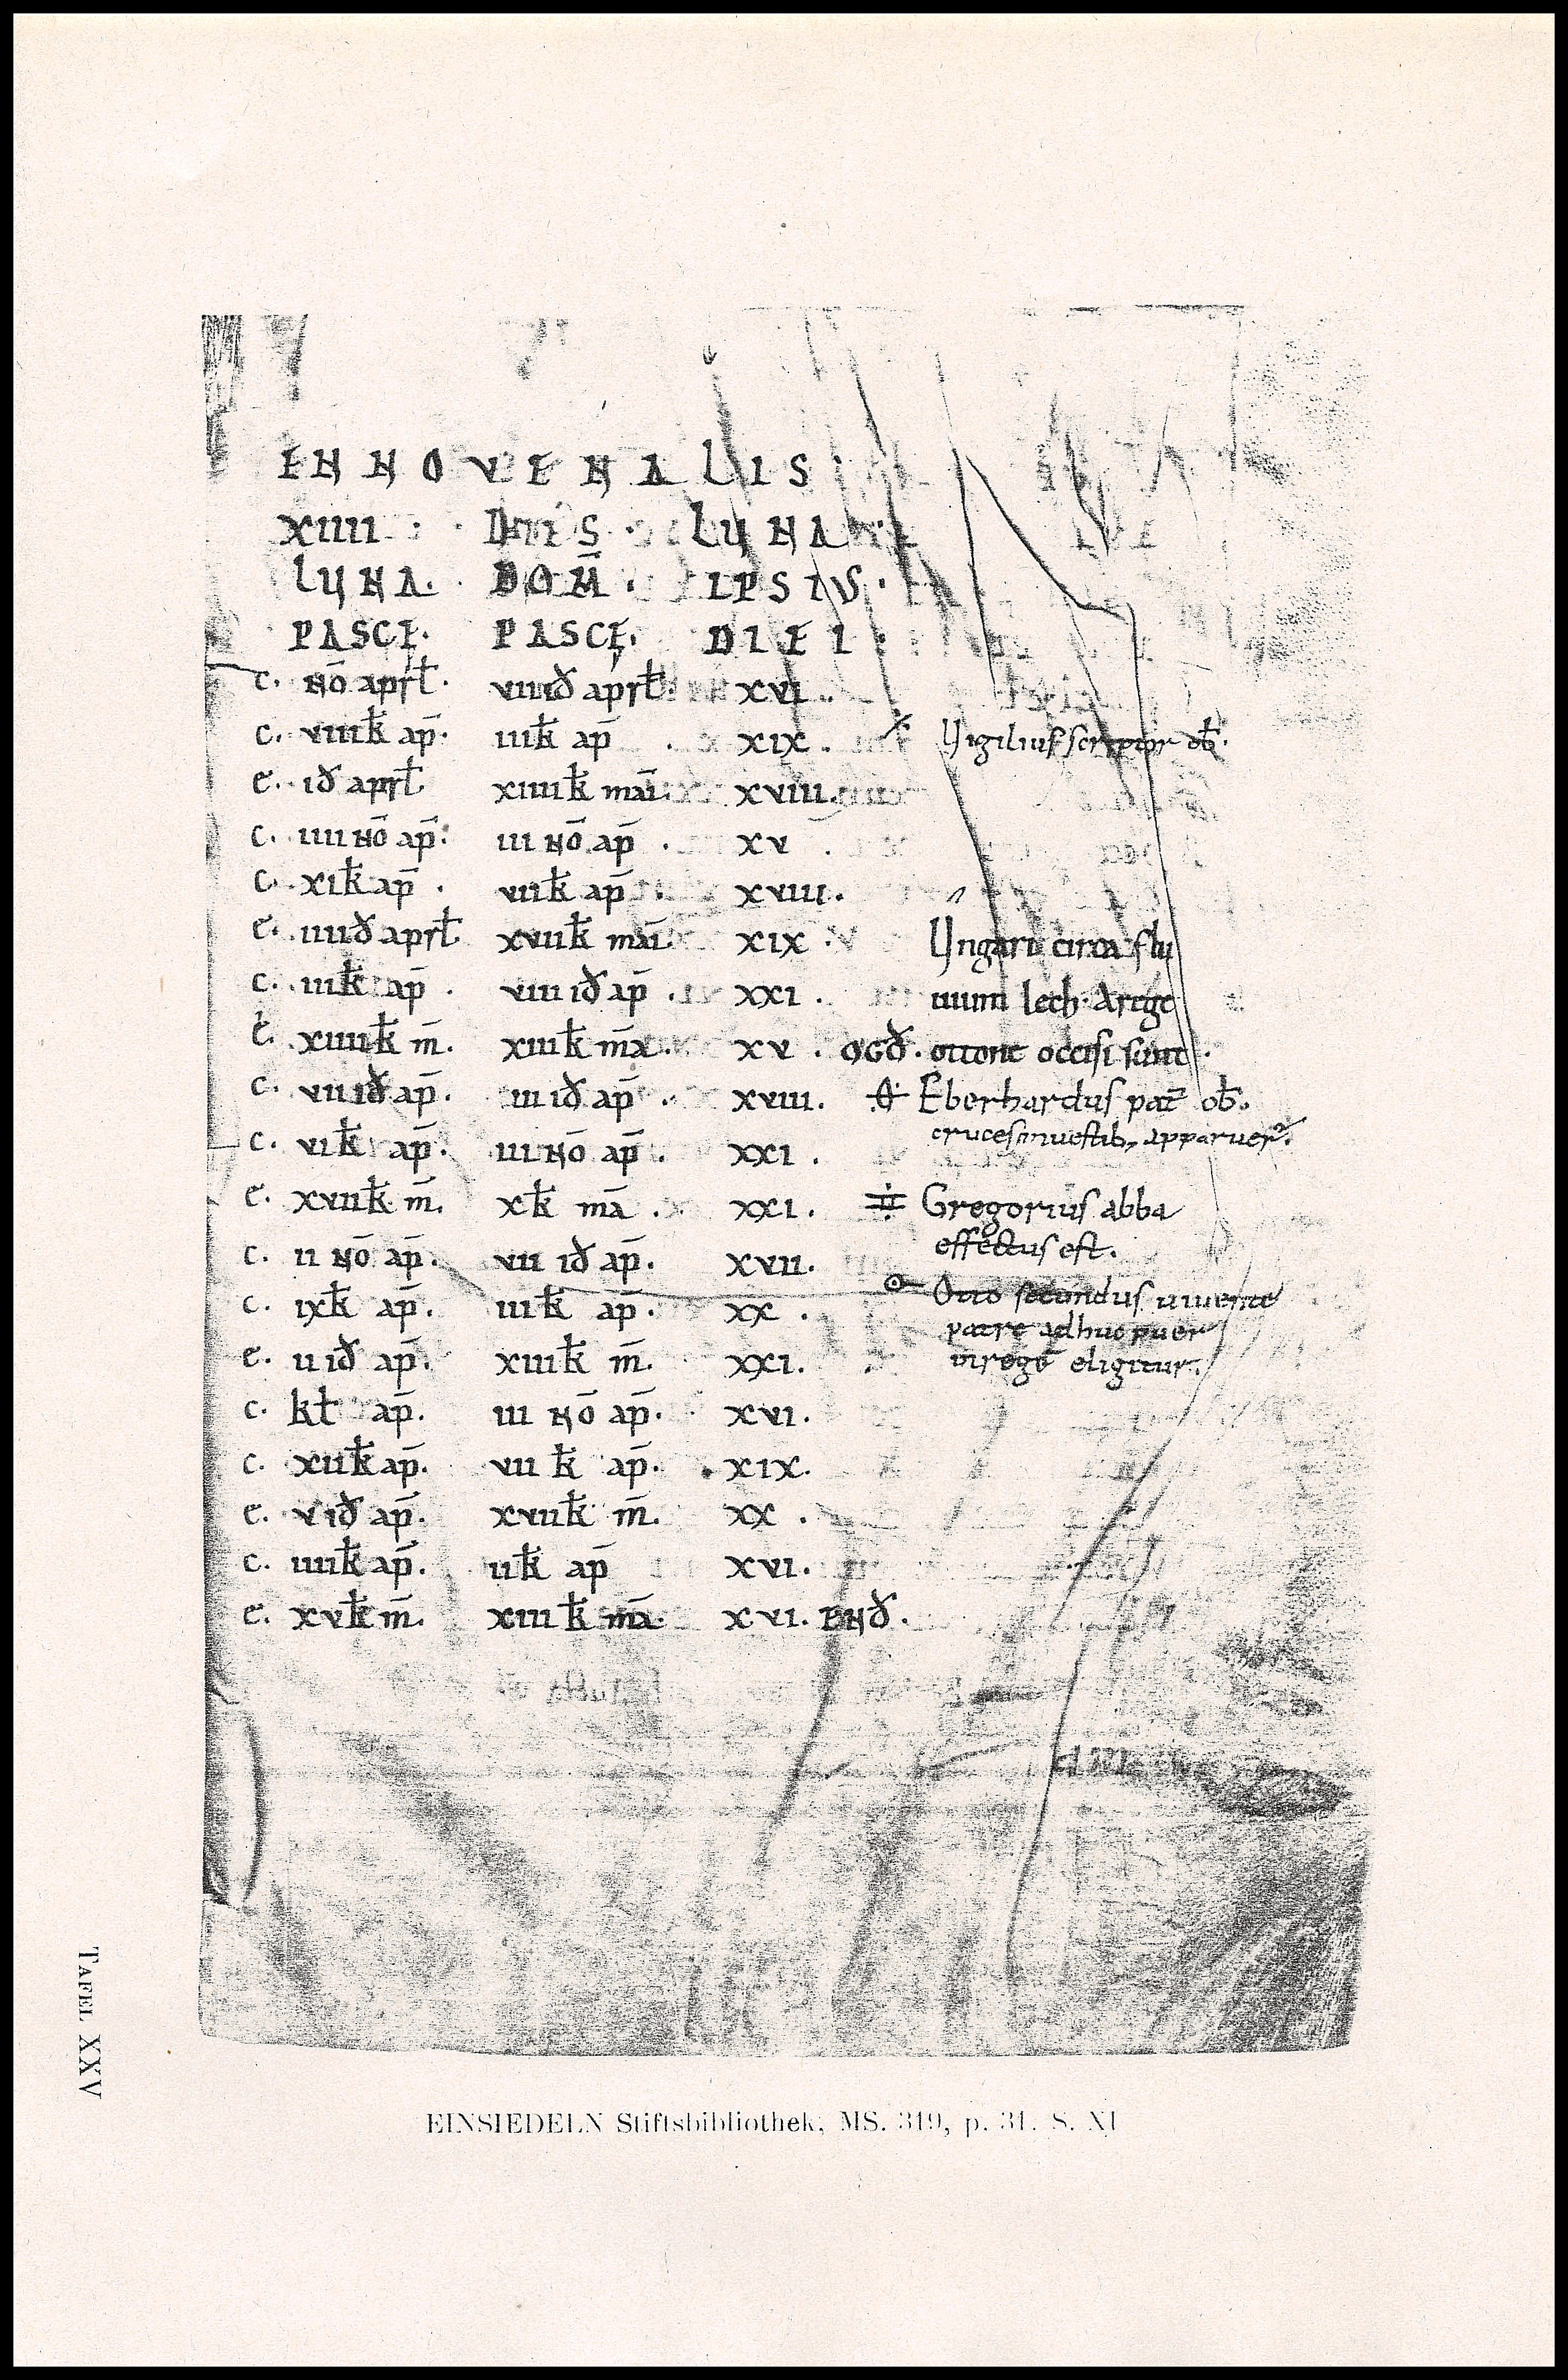 INNOVENALIS
XIIII · DIES · LUNA
LUNA · DOM̅ · IPSIUS ·
PASCE · PASCĘ · DIEI ·
c. nō aprł. viii id̄ aprł. xvi.
c. viiii k̄ ap̄. iiii k̄ ap̄ . xix . Vigilius scriptor ob̄.
e. id̄ aprł xiiii k̄ mai̅. xviii.
c. iiii nō ap̄. iii nō ap̄ . xv .
c. xi k̄ ap̄ . vii k̄ ap̄ . xviii.
e. iiii id̄ aprł xvii k̄ mai̅. xix . Vngari circa flu
c. iii k̄ ap̄ . viii id̄ ap̄ . xxi . uium lech. A rege
e. xiiii k̄ m̄. xiii k̄ mā. xv . OGD̄. ottone occisi sunt.
c. vii id̄ ap̄. iii id̄ ap̄ . xviii. Eberhardus pat̄ ob̄.
cruces in uestib; apparuer̄.
c. vi k̄ ap̄. iii nō ap̄ . xxi .
e. xvii k̄ m̄. x k̄ mā . xxi . Gregorius abba
effectus est.
c. ii nō ap̄. vii id̄ ap̄. xvii.
c. ix k̄ ap̄. iiii k̄ ap̄. xx . Otto secundus uiuente
patre adhuc puer
in regē eligitur.
e. ii id̄ ap̄. xiii k̄ m̄. xxi.
c. kł ap̄. iii nō ap̄. xvi.
c. xii k̄ ap̄. vii k̄ ap̄. xix.
e. v id̄ ap̄. xvii k̄ m̄. xx .
c. iiii k̄ ap̄. ii k̄ ap̄ xvi.
e. xv k̄ m̄. xiii k̄ mā. xvi. END̄.
TAFEL XXV
EINSIEDELN Stiftsbibliothek, MS. 319, p. 31. S. XI